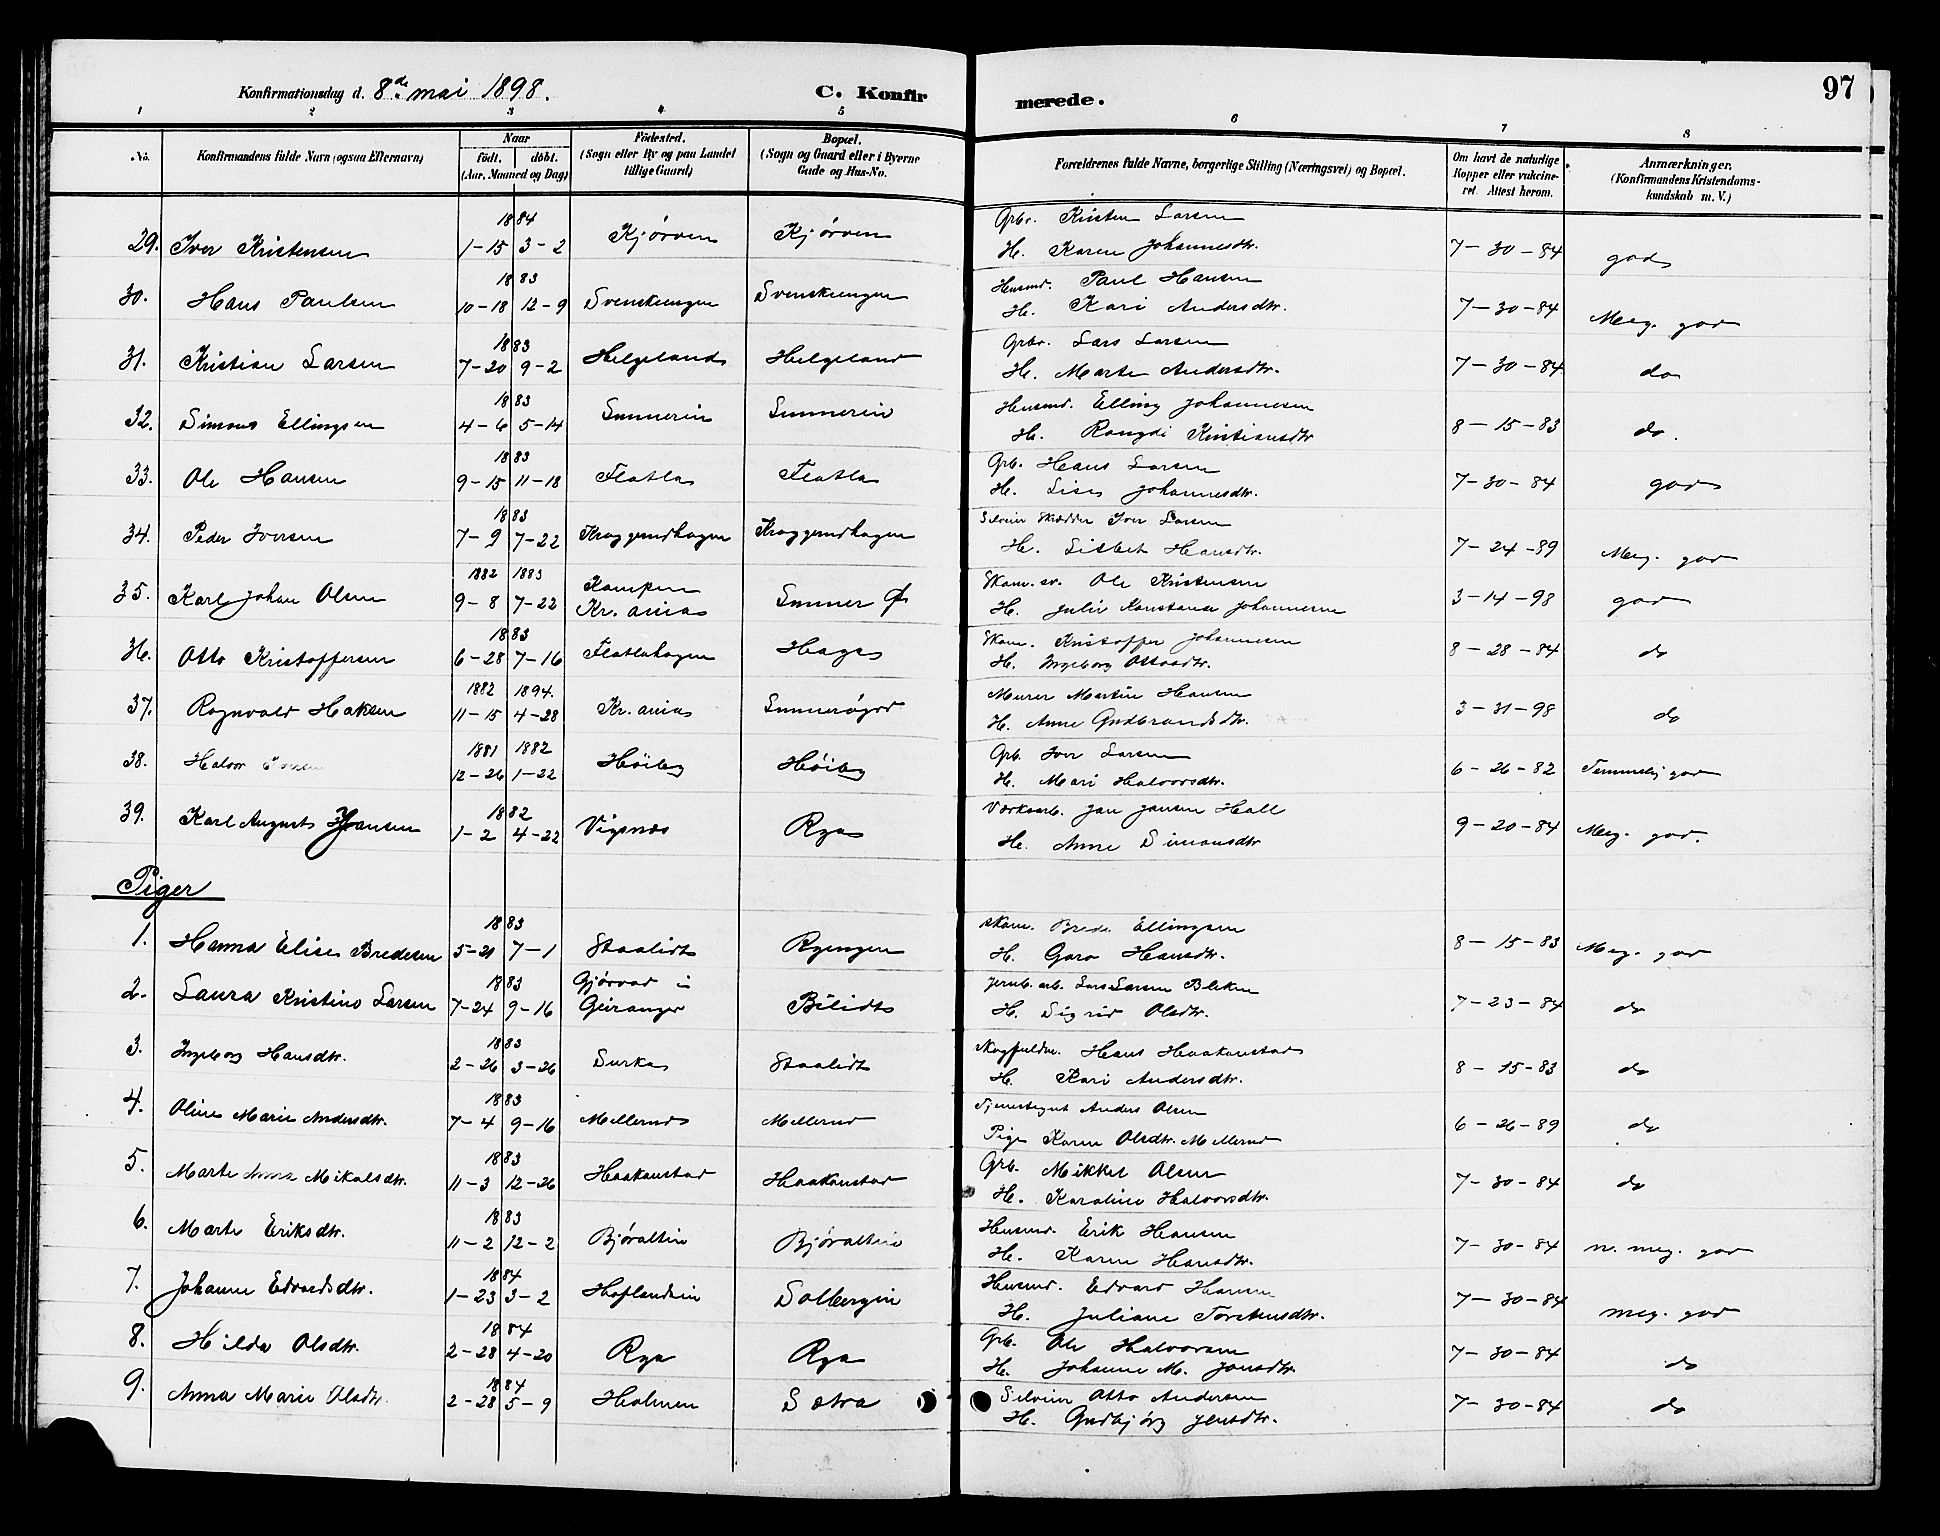 97
Konfirmationsdag d. 8de mai 1898. C. Konfirmerede.
1 2 3 4 5 6 7 8
No. Konfirmandens fulde Navn (ogsaa Efternavn) Naar födt. döbt. (Aar, Maaned og Dag) Födested. (Sogn eller By og paa Landet tillige Gaard) Bopæl. (Sogn og Gaard eller i Byerne Gade og Hus-No. Forældrenes fulde Navne, borgerlige Stilling (Næringsvei) og Bopæl. Om havt de naturlige Kopper eller vakcineret. Attest herom. Anmærkninger. (Konfirmandens Kristendomskundskab m. V.)
1884 Grbr. Kristen Larsen
29. Iver Kristensen 1-15 3-2 Kjørven Kjørven H. Karen Johannesdtr. 7-30-84 god
1883 Husmd. Paul Hansen
30. Hans Paulsen 10-18 12-9 Svenskeengen Svenskeengen H. Kari Andersdtr. 7-30-84 Meg. god
1883 Grbr. Lars Larsen
31. Kristian Larsen 7-20 9-2 Helgeland Helgeland H. Marte Andersdtr. 7-30-84 do
1883 Husmd. Elling Johannesen
32. Simon Ellingsen 4-6 5-14 H. Rangdi Kristiansdtr 8-15-83 do.
1883 Grb. Hans Larsen
33. Ole Hansen 9-15 11-18 Flatla Flatla H. Lise Johannesdtr. 7-30-84 god
1883 Iver Larsen
34. Peder Iversen 7-9 7-22 Kraggerudhagen Kraggerudhagen H. Lisbet Hansdtr. 7-24-89 Meg. god
1882 1883 Kampen Ole Kristensen
35. Karl Johan Olsen 9-8 7-22 Kr.ania Sunner Ø H. Julie Konstance Johannesen 3-14-98 god
1883 Skom. Kristoffer Johannesen
36. Otto Kristoffersen 6-28 7-16 Flatlahagen Haga H. Ingeborg Ottosdtr. 8-28-84 do
1882 1894. Murer Martin Hansen
37. Ragnvald Hansen 11-15 4-28 Kr.ania H. Anne Gudbrandsdtr. 3-31-98 do
1881 1882 Grb. Iver Larsen
38. Halvor 12-26 1-22 Høiby Høiby H. Mari Halvorsdtr. 6-26-82 Temmelig god
1882 Værksarb. Jan Jansen Hall
39. Karl August Jansen 1-2 4-22 Vigsnæs Rya H. Anne Simonsdtr 9-20-84 Meg. god.
Piger
1883 skom. Brede Ellingsen
1. Hanna Elise Bredesen 5-21 7-1 Staalidt Ryengen H. Garo Hansdtr. 8-15-83 Meg. god
1883 Gjørvad i Jernb. arb. Lars Larsen Bleken
2. Laura Kristine Larsen 7-24 9-16 Geiranger Bilidt H. Sigrid Olsdtr. 7-23-84 do
1883 Hans Haakenstad
3. Ingeborg Hansdtr. 2-26 3-26 Surka Staalidt H. Kari Andersdtr. 8-15-83 do
1883 Tjenestegut Anders Olsen
4. Oline Marie Andersdtr. 7-4 9-16 Mellerud Mellerud Pige Karen Olsdtr. Mellerud 6-26-89 do
1883 Grb. Mikkel Olsen
5. Marte Anna Mikalsdtr. 11-3 12-26 Haakenstad Haakenstad H. Karoline Halvorsdtr. 7-30-84 do
1883 Husmd. Erik Hansen
6. Marte Eriksdtr. 11-2 12-2 Bjøraltin Bjøraltin H. Karen Hansdtr. 7-30-84 n. meg. god
1884 Husmd. Edvard Hansen
7. Johanne Edvardsdtr. 1-23 3-2 Haflandsin Solbergin H. Juliane Torstensdtr. 7-30-84 meg. god
1884 Grb. Ole Halvorsen
8. Hilda Olsdtr. 2-28 4-20 Rya Rya H. Johanne M. Jonsdtr. 7-30-84 do
1884 Selveier Otto Andersen
9. Anna Marie Olsdtr. 2-28 5-9 Holmen Sætra H. Gudbjörg Jensdtr. 7-30-84 do